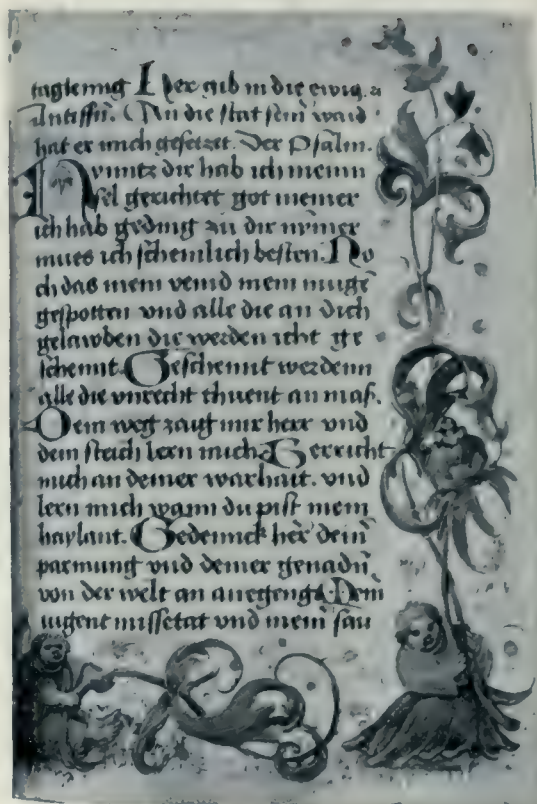 taglenng Herr gib in die ewig
Antiffn. An die stat sein waid
hat er mich gesetzet. Der Psalm.
Hyuntz dir hab ich meinn
sel gerichtet got meiner
ich hab geding zu dir nymer
mues ich schemlich besten. No
ch das mein veind mein mugē
gespotten vnd alle die an dich
gelawben die werden icht ge
schennt. Geschennt werdenn
alle die vnrecht thuent an maß.
Dein weg zaug mir herr vnd
dein steich lern mich. Gerricht
mich an deiner warhait. vnd
lern mich wann du pist mein
haylant. Gedennck her dein
parmung vnd deiner genadn
von der welt an anegeng. Dein
iugent missetat vnd mein sau